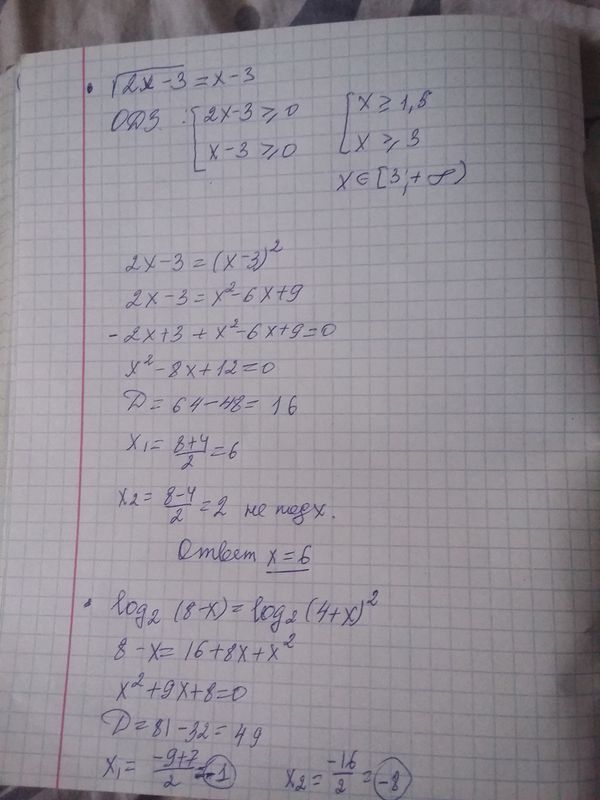 • √2x-3 = x-3
ОДЗ : [2x-3 ≥ 0 [x ≥ 1,5
x-3 ≥ 0 x ≥ 3
x ∈ [3; +∞)
2x-3 = (x-3)²
2x-3 = x²-6x+9
-2x+3 + x²-6x+9=0
x²-8x+12=0
D = 64-48= 16
x₁= 8+4/2 = 6
x₂= 8-4/2 = 2 не подх.
Ответ x=6
• log₂ (8-x) = log₂ (4+x)²
8-x= 16+8x+x²
x²+9x+8=0
D=81-32= 49
x₁= -9+7/2 = -1 x₂= -16/2 = -8